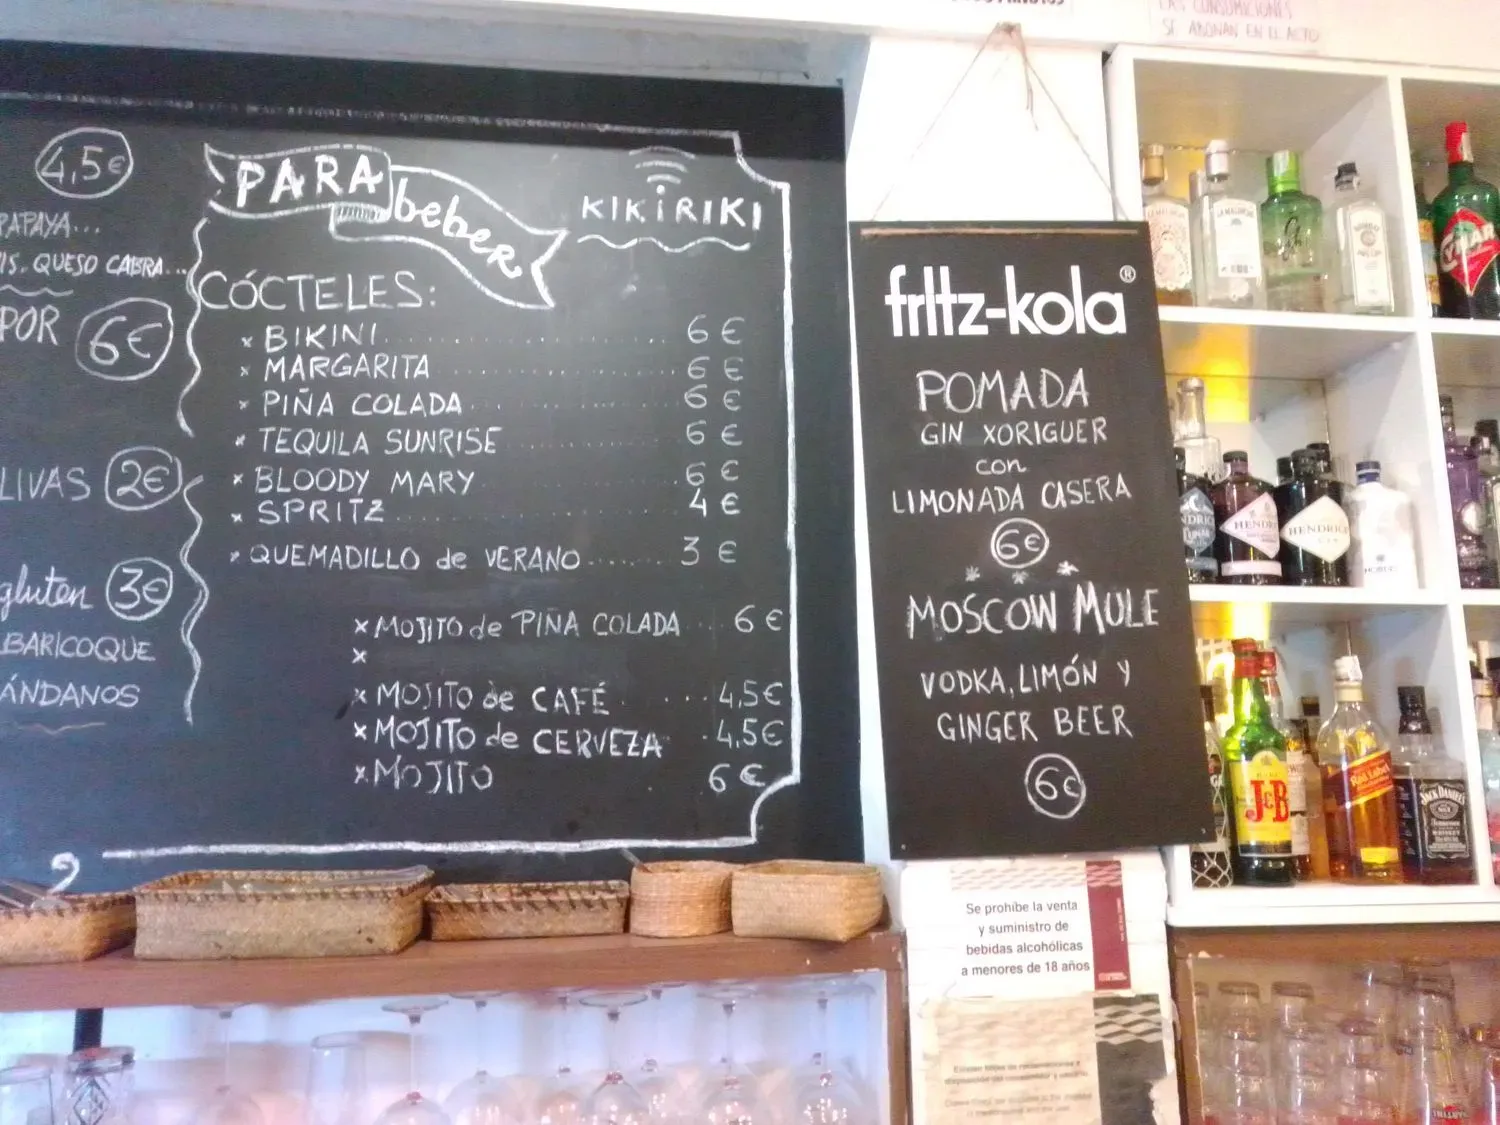 LAS CONSUMICIONES
SE ABONAN EN EL ACTO
4,5€
PAPAYA...
QUESO CABRA...
POR 6€
LIVAS 2€
gluten 3€
BARICOQUE
ÁNDANOS
PARA beber
KIKiRIKI
CÓCTELES:
x BIKINI 6 €
x MARGARITA 6 €
x PIÑA COLADA 6 €
x TEQUILA SUNRISE 6 €
x BLOODY MARY 6 €
x SPRITZ 4 €
x QUEMADILLO de VERANO 3 €
x MOJITO de PIÑA COLADA 6 €
x
x MOJITO de CAFÉ 4,5€
x MOJITO de CERVEZA 4,5€
x MOJITO 6 €
frItz-kola®
POMADA
GIN XORIGUER
con
LIMONADA CASERA
6€
MOSCOW MULE
VODKA, LIMÓN Y
GINGER BEER
6€
Se prohíbe la venta
y suministro de
bebidas alcohólicas
a menores de 18 años
HENDRICK
HENDRICK
J&B
Red Label
JACK DANIEL'S
Tennessee
WHISKEY